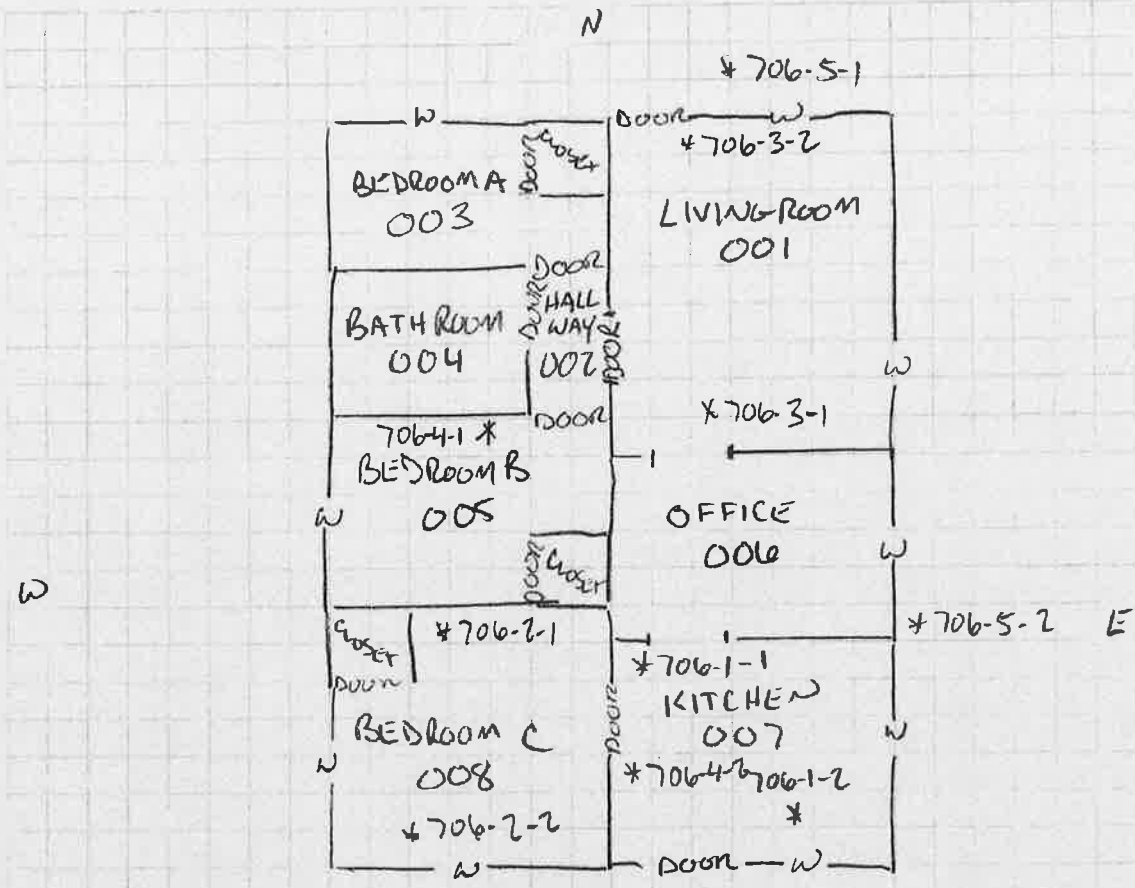 N
* 706-5-1
W
DOOR
W
DOOR
CLOSET
* 706-3-2
BEDROOM A
003
LIVINGROOM
001
DOOR
BATHROOM
004
DOOR
HALL
WAY
002
DOOR
W
DOOR
706-4-1 *
BEDROOM B
005
* 706-3-1
W
OFFICE
006
W
DOOR
CLOSET
W
CLOSET
DOOR
* 706-2-1
* 706-5-2
E
* 706-1-1
KITCHEN
007
DOOR
W
BEDROOM C
008
W
* 706-4-2
706-1-2
*
* 706-2-2
W
DOOR
W